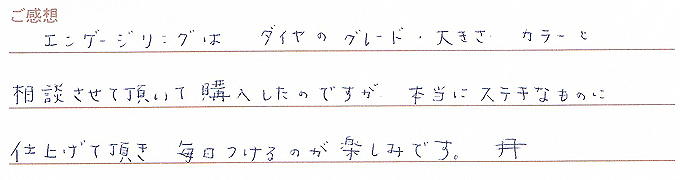 ご感想
エンゲージリングは ダイヤのグレード・大きさ カラーと
相談させて頂いて購入したのですが 本当にステキなものに
仕上げて頂き 毎日つけるのが楽しみです。